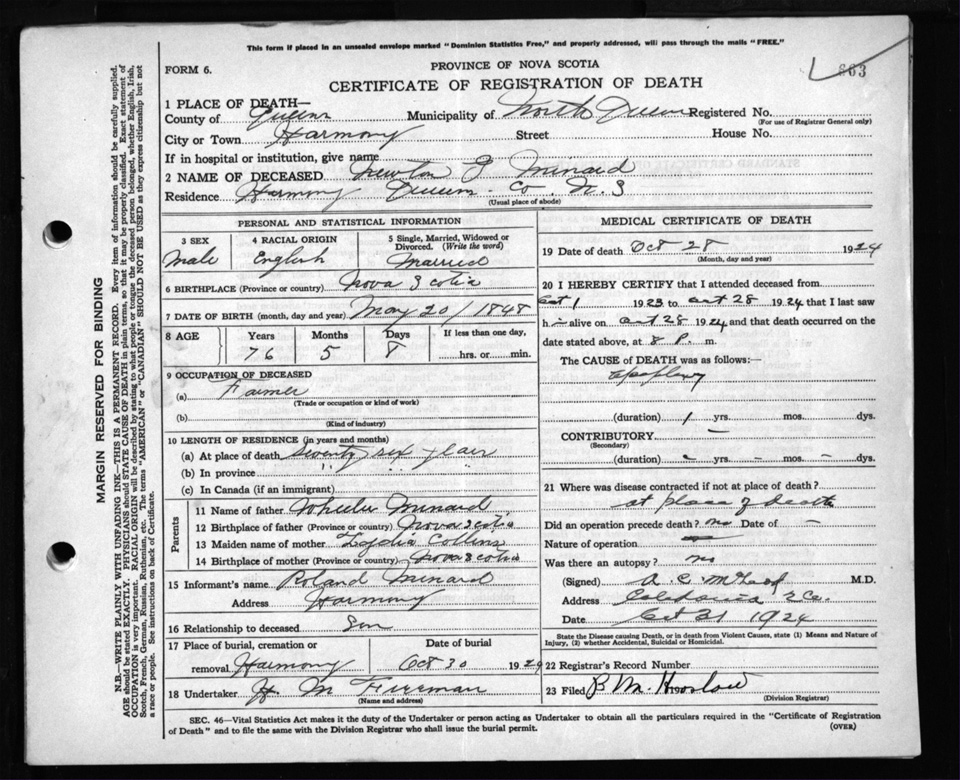 This form if placed in an unsealed envelope marked "Dominion Statistics Free," and properly addressed, will pass through the mails "FREE."
FORM 6.
PROVINCE OF NOVA SCOTIA
663
CERTIFICATE OF REGISTRATION OF DEATH
1 PLACE OF DEATH—
County of Queens Municipality of North Queens Registered No.
(For use of Registrar General only)
City or Town Harmony Street House No.
If in hospital or institution, give name
2 NAME OF DECEASED Newton J Minard
Residence Harmony Queens Co. N. S
(Usual place of abode)
PERSONAL AND STATISTICAL INFORMATION
3 SEX 4 RACIAL ORIGIN 5 Single, Married, Widowed or Divorced. (Write the word)
Male English Married
6 BIRTHPLACE (Province or country) Nova Scotia
7 DATE OF BIRTH (month, day and year) May 20/1848
8 AGE Years Months Days If less than one day,
76 5 8 hrs. or min.
9 OCCUPATION OF DECEASED
(a) Farmer
(Trade or occupation or kind of work)
(b)
(Kind of industry)
10 LENGTH OF RESIDENCE (in years and months)
(a) At place of death seventy six year
(b) In province " " "
(c) In Canada (if an immigrant)
Parents
11 Name of father Wheeler Minard
12 Birthplace of father (Province or country) Nova Scotia
13 Maiden name of mother Lydia Collins
14 Birthplace of mother (Province or country) Nova Scotia
15 Informant's name Roland Minard
Address Harmony
16 Relationship to deceased Son
17 Place of burial, cremation or Date of burial
removal Harmony Oct 30 1924
18 Undertaker H. M Freeman
(Name and address)
MEDICAL CERTIFICATE OF DEATH
19 Date of death Oct 28 1924
(Month, day and year)
20 I HEREBY CERTIFY that I attended deceased from
Oct 1 1923 to Oct 28 1924 that I last saw
h alive on Oct 28 1924 and that death occurred on
date stated above, at 8 P. m.
The CAUSE of DEATH was as follows:—
Apoplexy
(duration) 1 yrs. mos. dys.
CONTRIBUTORY —
(Secondary)
(duration) yrs. - mos. - dys.
21 Where was disease contracted if not at place of death?
at place of death
Did an operation precede death? no Date of —
Nature of operation —
Was there an autopsy? no
(Signed) A. C. M.D.
Address Caledonia Co.
Date Oct 31 1924
State the Disease causing Death, or in death from Violent Causes, state (1) Means and Nature of
Injury, (2) whether Accidental, Suicidal or Homicidal.
22 Registrar's Record Number
23 Filed B M. Harlow
(Division Registrar)
SEC. 46—Vital Statistics Act makes it the duty of the Undertaker or person acting as Undertaker to obtain all the particulars required in the "Certificate of Registration
of Death" and to file the same with the Division Registrar who shall issue the burial permit.
(OVER)
MARGIN RESERVED FOR BINDING
N.B.—WRITE PLAINLY WITH UNFADING INK—THIS IS A PERMANENT RECORD. Every item of information should be carefully supplied.
AGE should be stated EXACTLY. PHYSICIANS should STATE CAUSE OF DEATH in plain terms, so that it may be properly classified. Exact statement of
OCCUPATION is very important. RACIAL ORIGIN will be described by stating to what people or tongue the deceased person belonged, whether English, Irish,
Scotch, French, German, Russian, Ruthenian, etc. The terms "AMERICAN" or "CANADIAN" SHOULD NOT BE USED as they express citizenship but not
a race or people. See instructions on back of Certificate.